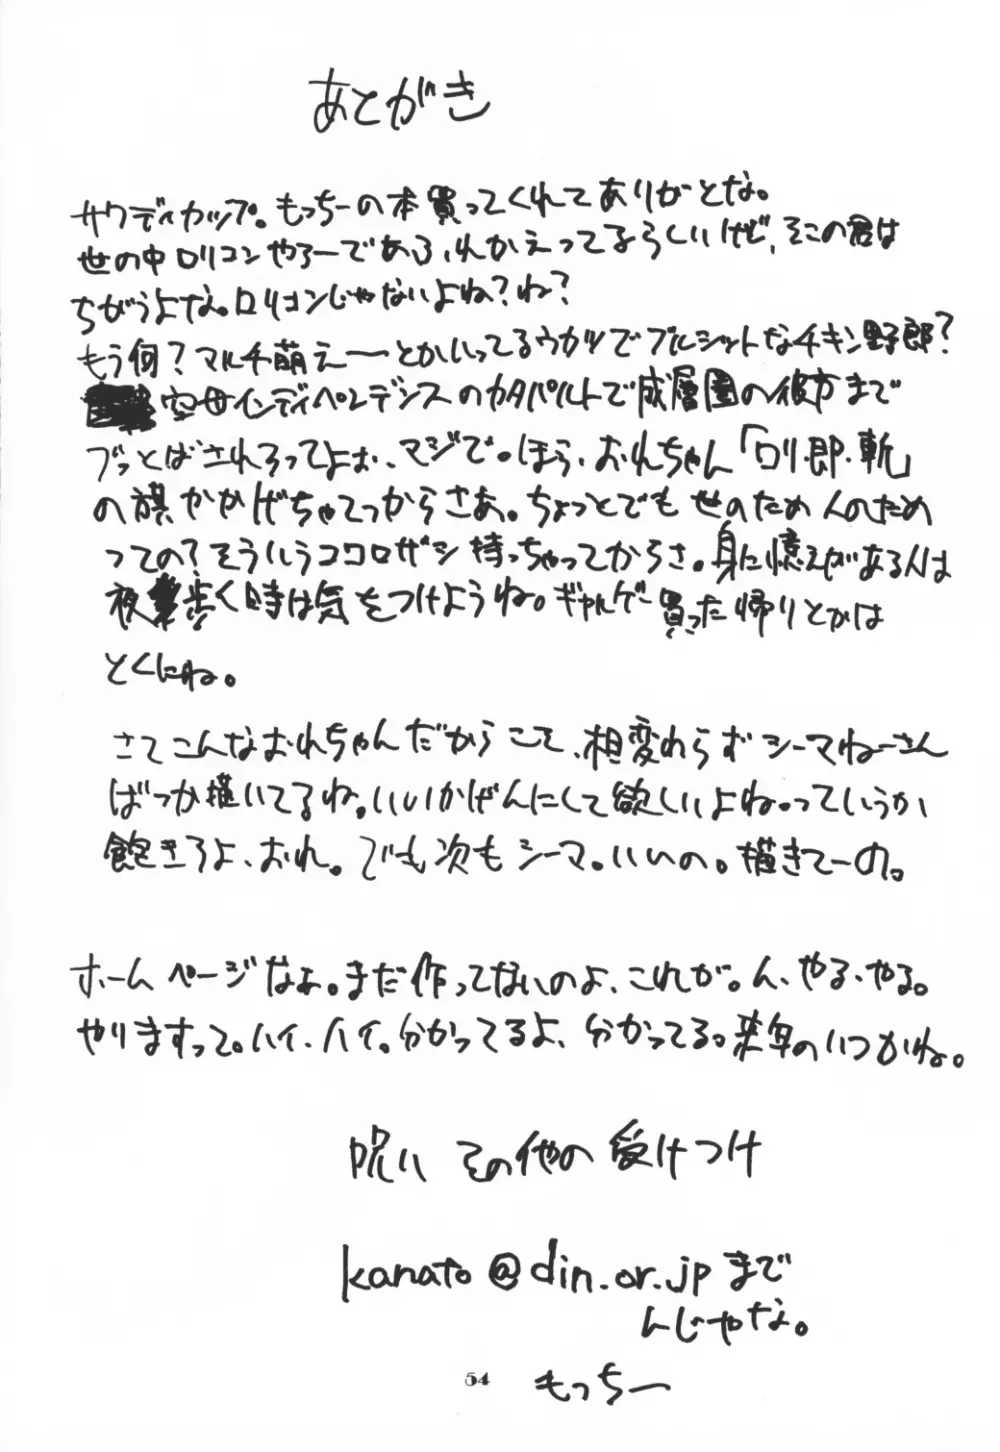 あとがき
サウディカップ。もっちーの本買ってくれてありがとな。
世の中ロリコンやろーであふれかえってるらしいけど、そこの君は
ちがうよな。ロリコンじゃないよね？ね？
もう何？マルチ萌えーーとかいってるウカツでブルシットなチキン野郎？
空母インディペンデンスのカタパルトで成層圏の彼方まで
ブッとばされろってよぉ、マジで。ほら、おれちゃん「ロリ・即・斬」
の旗かかげちゃてっからさあ。ちょっとでも世のため人のため
っての？そういうココロザシ持っちゃってからさ。身に憶えがある人は
夜歩く時は気をつけようね。ギャルゲー買った帰りとかは
とくにね。
さてこんなおれちゃんだからこそ、相変わらずシーマねーさん
ばっか描いてるね。いいかげんにして欲しいよねっていうか
飽きろよ、おれ。でも次もシーマ。いいの。描きてーの。
ホームページなぁ。まだ作ってないのよ、これが。ん、やる、やる。
やりますって。ハイ、ハイ。分かってるよ、分かってる。来年のいつかね。
呪い その他の 受けつけ
kanato@din.or.jpまで
んじゃな。
もっちー
54